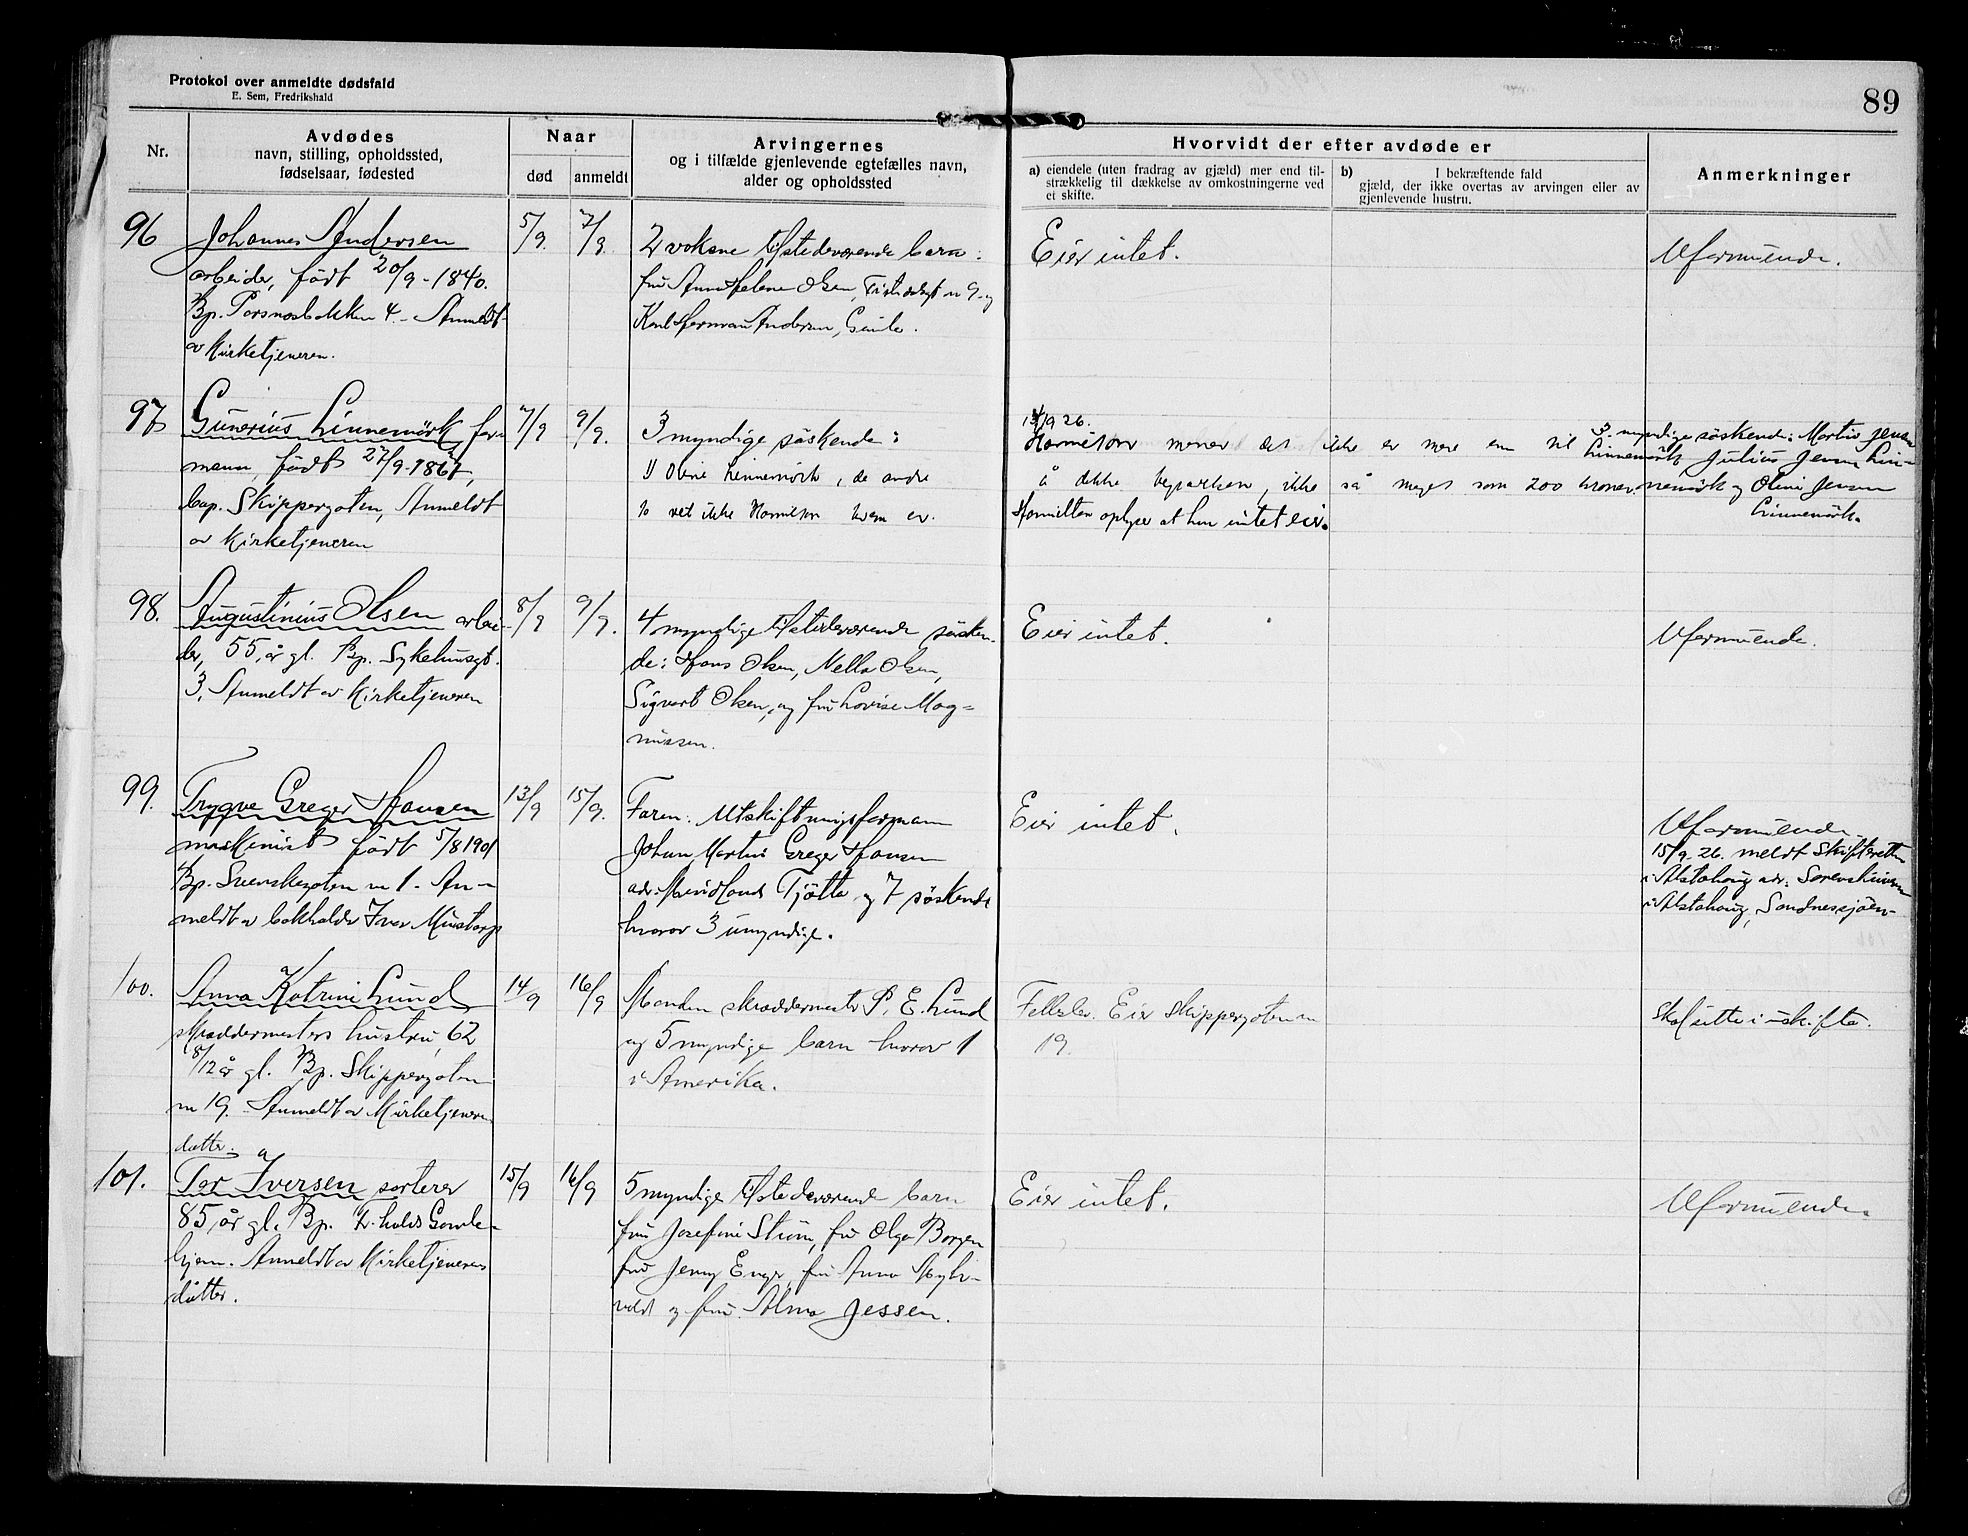 Protokol over anmeldte dødsfald
E. Sem, Fredrikshald
89
Nr.
Avdødes
navn, stilling, opholdssted,
fødselsaar, fødested
Naar
død
anmeldt
Arvingernes
og i tilfælde gjenlevende egtefælles navn,
alder og opholdssted
Hvorvidt der efter avdøde er
a) eiendele (uten fradrag av gjæld) mer end til-
strækkelig til dækkelse av omkostningerne ved
et skifte.
b) I bekræftende fald
gjæld, der ikke overtas av arvingen eller av
gjenlevende hustru.
Anmerkninger
96
Johannes Andersen
arbeider, født 20/9-1840.
Bp. Porsnesbakken 4. - Anmeldt
av Kirketjeneren.
5/9.
7/9.
2 voksne tilstedeværende barn:
fru Anna Helene Olsen, 9 og
Karl Herman Andersen, Gimle.
Eier intet.
Uformuende.
97
Gunerius Linnemörk for-
mann, født 27/9-1867,
Bop. Skippergaten, Anmeldt
av Kirketjeneren
7/9
9/9.
3 myndige søskende:
1) Oline Linnemörk, de andre
to vet ikke Hamilton hvem er.
13/9 26.
Hamilton mener det ikke er mere enn til
å dekke begravelsen, ikke så meget som 200 kroner.
Hamilton oplyser at han intet eier.
3 myndige søskende: Martin Jensen
Linnemörk Julius Jensen Lin-
nemörk og Oline Jensen
Linnemörk.
98.
Augustinius Olsen arbei-
der, 55 år gl. Bp. Sykehusgt.
3. Anmeldt av Kirketjeneren
8/9
9/9.
4 myndige tilstedeværende søsken-
de: Hans Olsen, Nella Olsen,
Sigvart Olsen, og fru Lovise Mag-
nussen.
Eier intet.
Uformuende.
99.
Trygve Greger Hansen
maskinist født 5/8 1901
Bp. Svenskegaten nr 1. An-
meldt av bokholder Ivar Mustorp
13/9
15/9.
Faren: Utskiftningsformann
Johan Martin Greger Hansen
adr. Tjötta og 7 søskende
hvorav 3 umyndige.
Eier intet.
Uformuende.
15/9-26. meldt Skifteretten
i Alstahoug adr: Sorenskriveren
i Alstahoug, Sandnessjøen-
100.
Anna Katrine Lund
skreddermesters hustru, 62
8/12 år gl. Bp. Skippergaten
nr 19. Anmeldt av Kirketjeneren
datter.
14/9
16/9
Manden skreddermester P. E. Lund
og 5 myndige barn hvorav 1
i Amerika.
Fellesbo. Eier Skippergaten nr
19.
Skal sitte i uskifte.
101.
Tor Iversen sorterer
85 år gl. Bp. Gamle-
hjem. Anmeldt av Kirketjenerens
datter.
15/9
16/9
5 myndige tilstedeværende barn
fru Josefine Strøm, fru Olga Borgen
fru Jenny Enger, fru Anna
og fru Alma Jessen.
Eier intet.
Uformuende